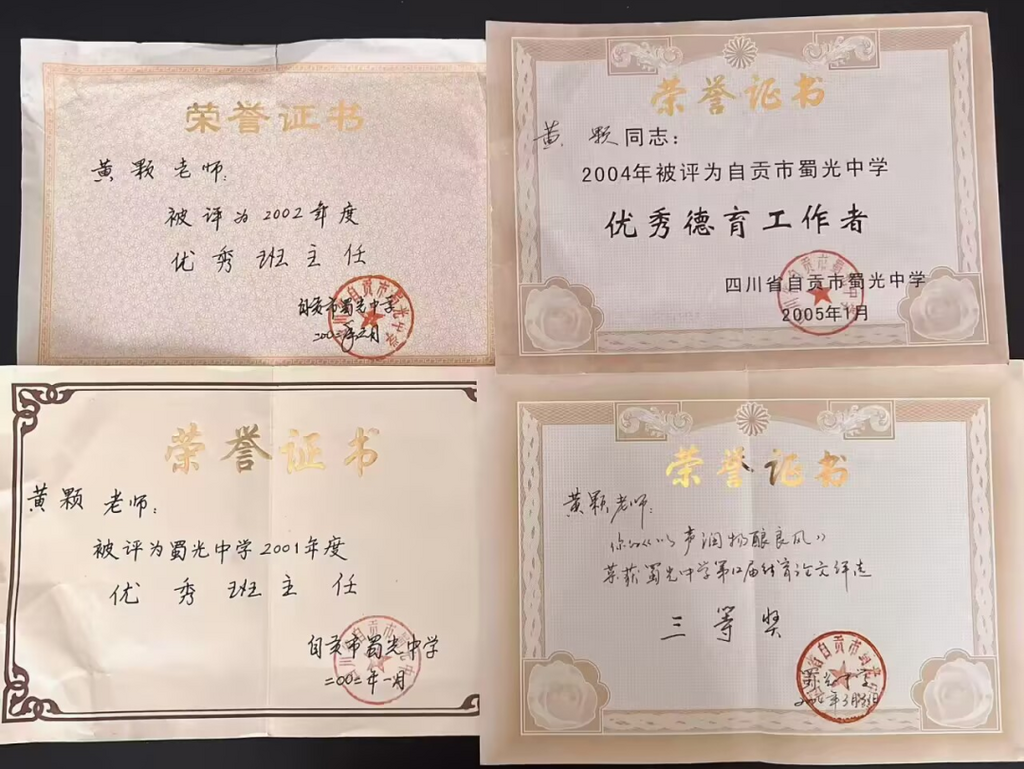 荣誉证书
黄颗老师:
被评为2002年度
优秀班主任
自贡市蜀光中学
荣誉证书
黄颗同志:
2004年被评为自贡市蜀光中学
优秀德育工作者
四川省自贡市蜀光中学
2005年1月
荣誉证书
黄颗老师:
被评为蜀光中学2001年度
优秀班主任
自贡市蜀光中学
二00二年一月
荣誉证书
黄颗老师:
你的《以声润物酿良风》
荣获蜀光中学第12届体育论文评选
三等奖